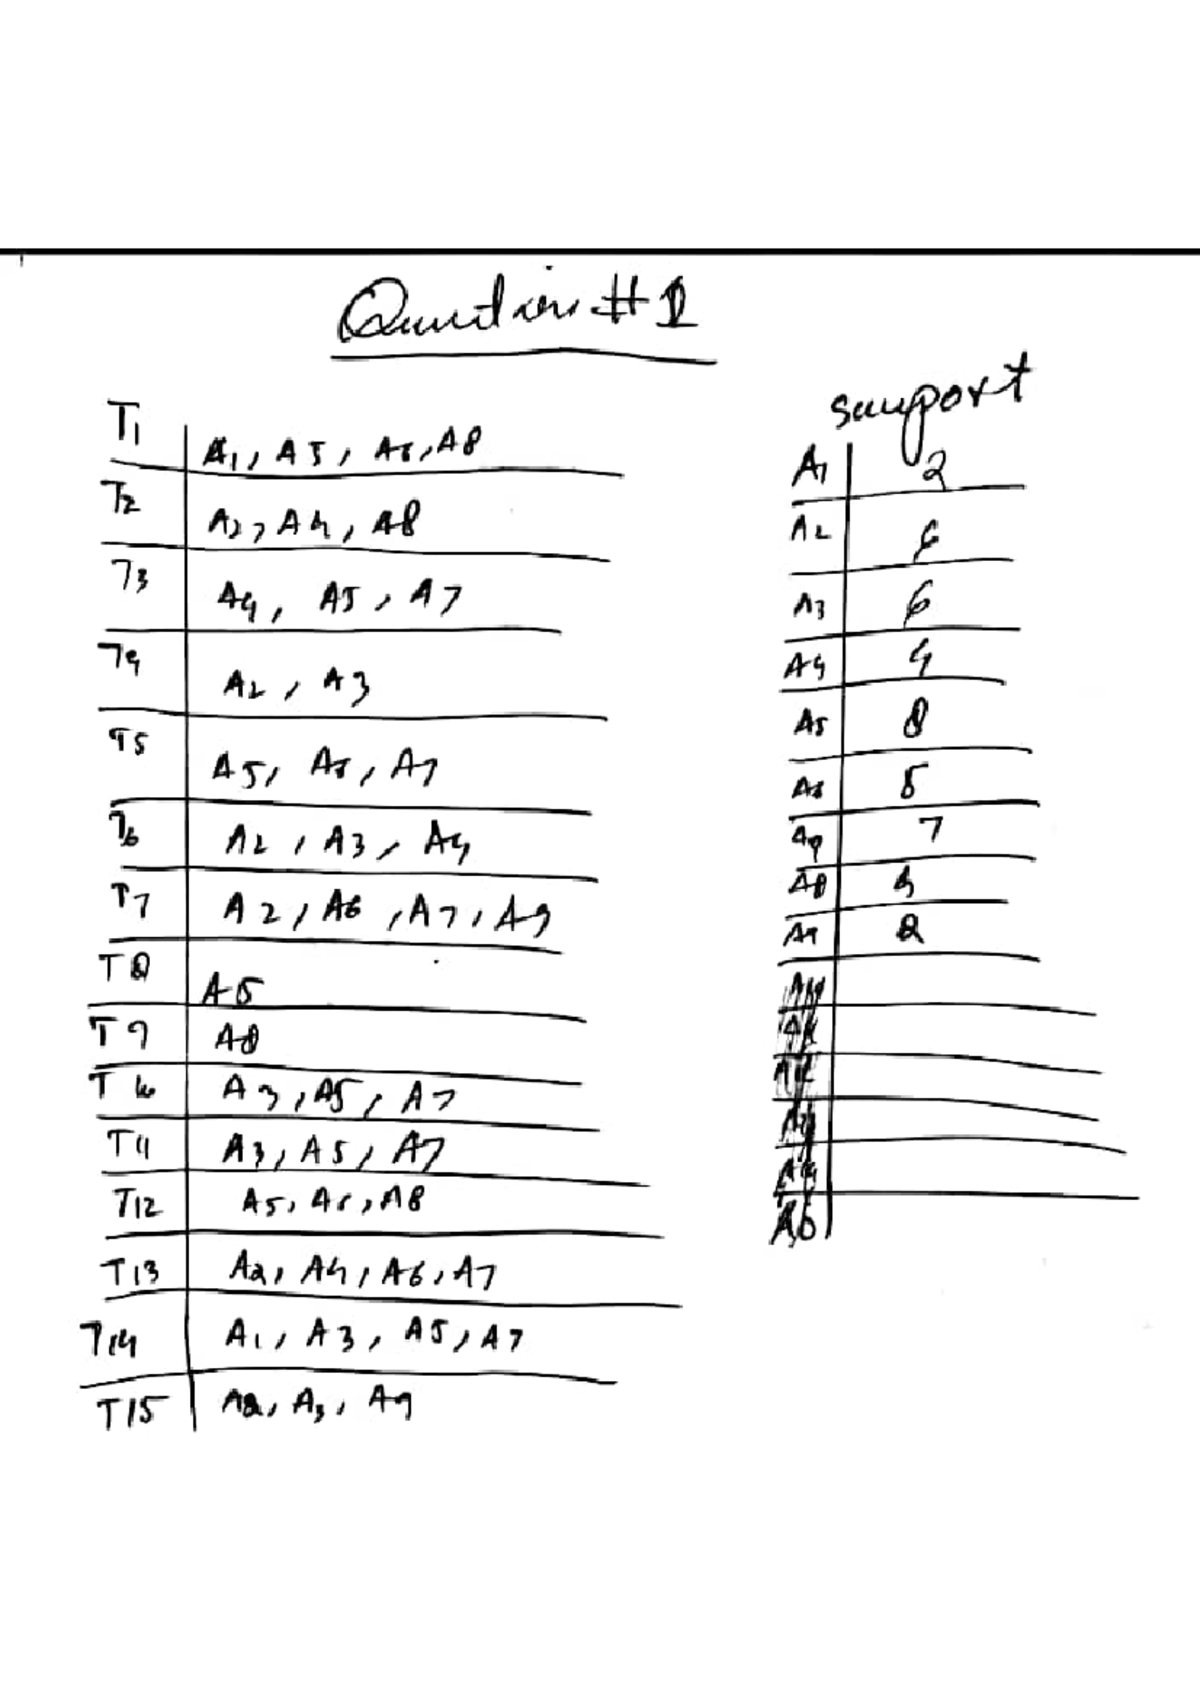 Question #1
support
T1 A1, A5, A6, A8
T2 A2, A4, A8
T3 A4, A5, A7
T4 A2, A3
T5 A5, A6, A7
T6 A2, A3, A4
T7 A2, A6, A7, A9
T8 A5
T9 A8
T10 A3, A5, A7
T11 A3, A5, A7
T12 A5, A6, A8
T13 A2, A4, A6, A7
T14 A1, A3, A5, A7
T15 A2, A3, A9
A1 2
A2 6
A3 6
A4 4
A5 8
A6 5
A7 7
A8 4
A9 2